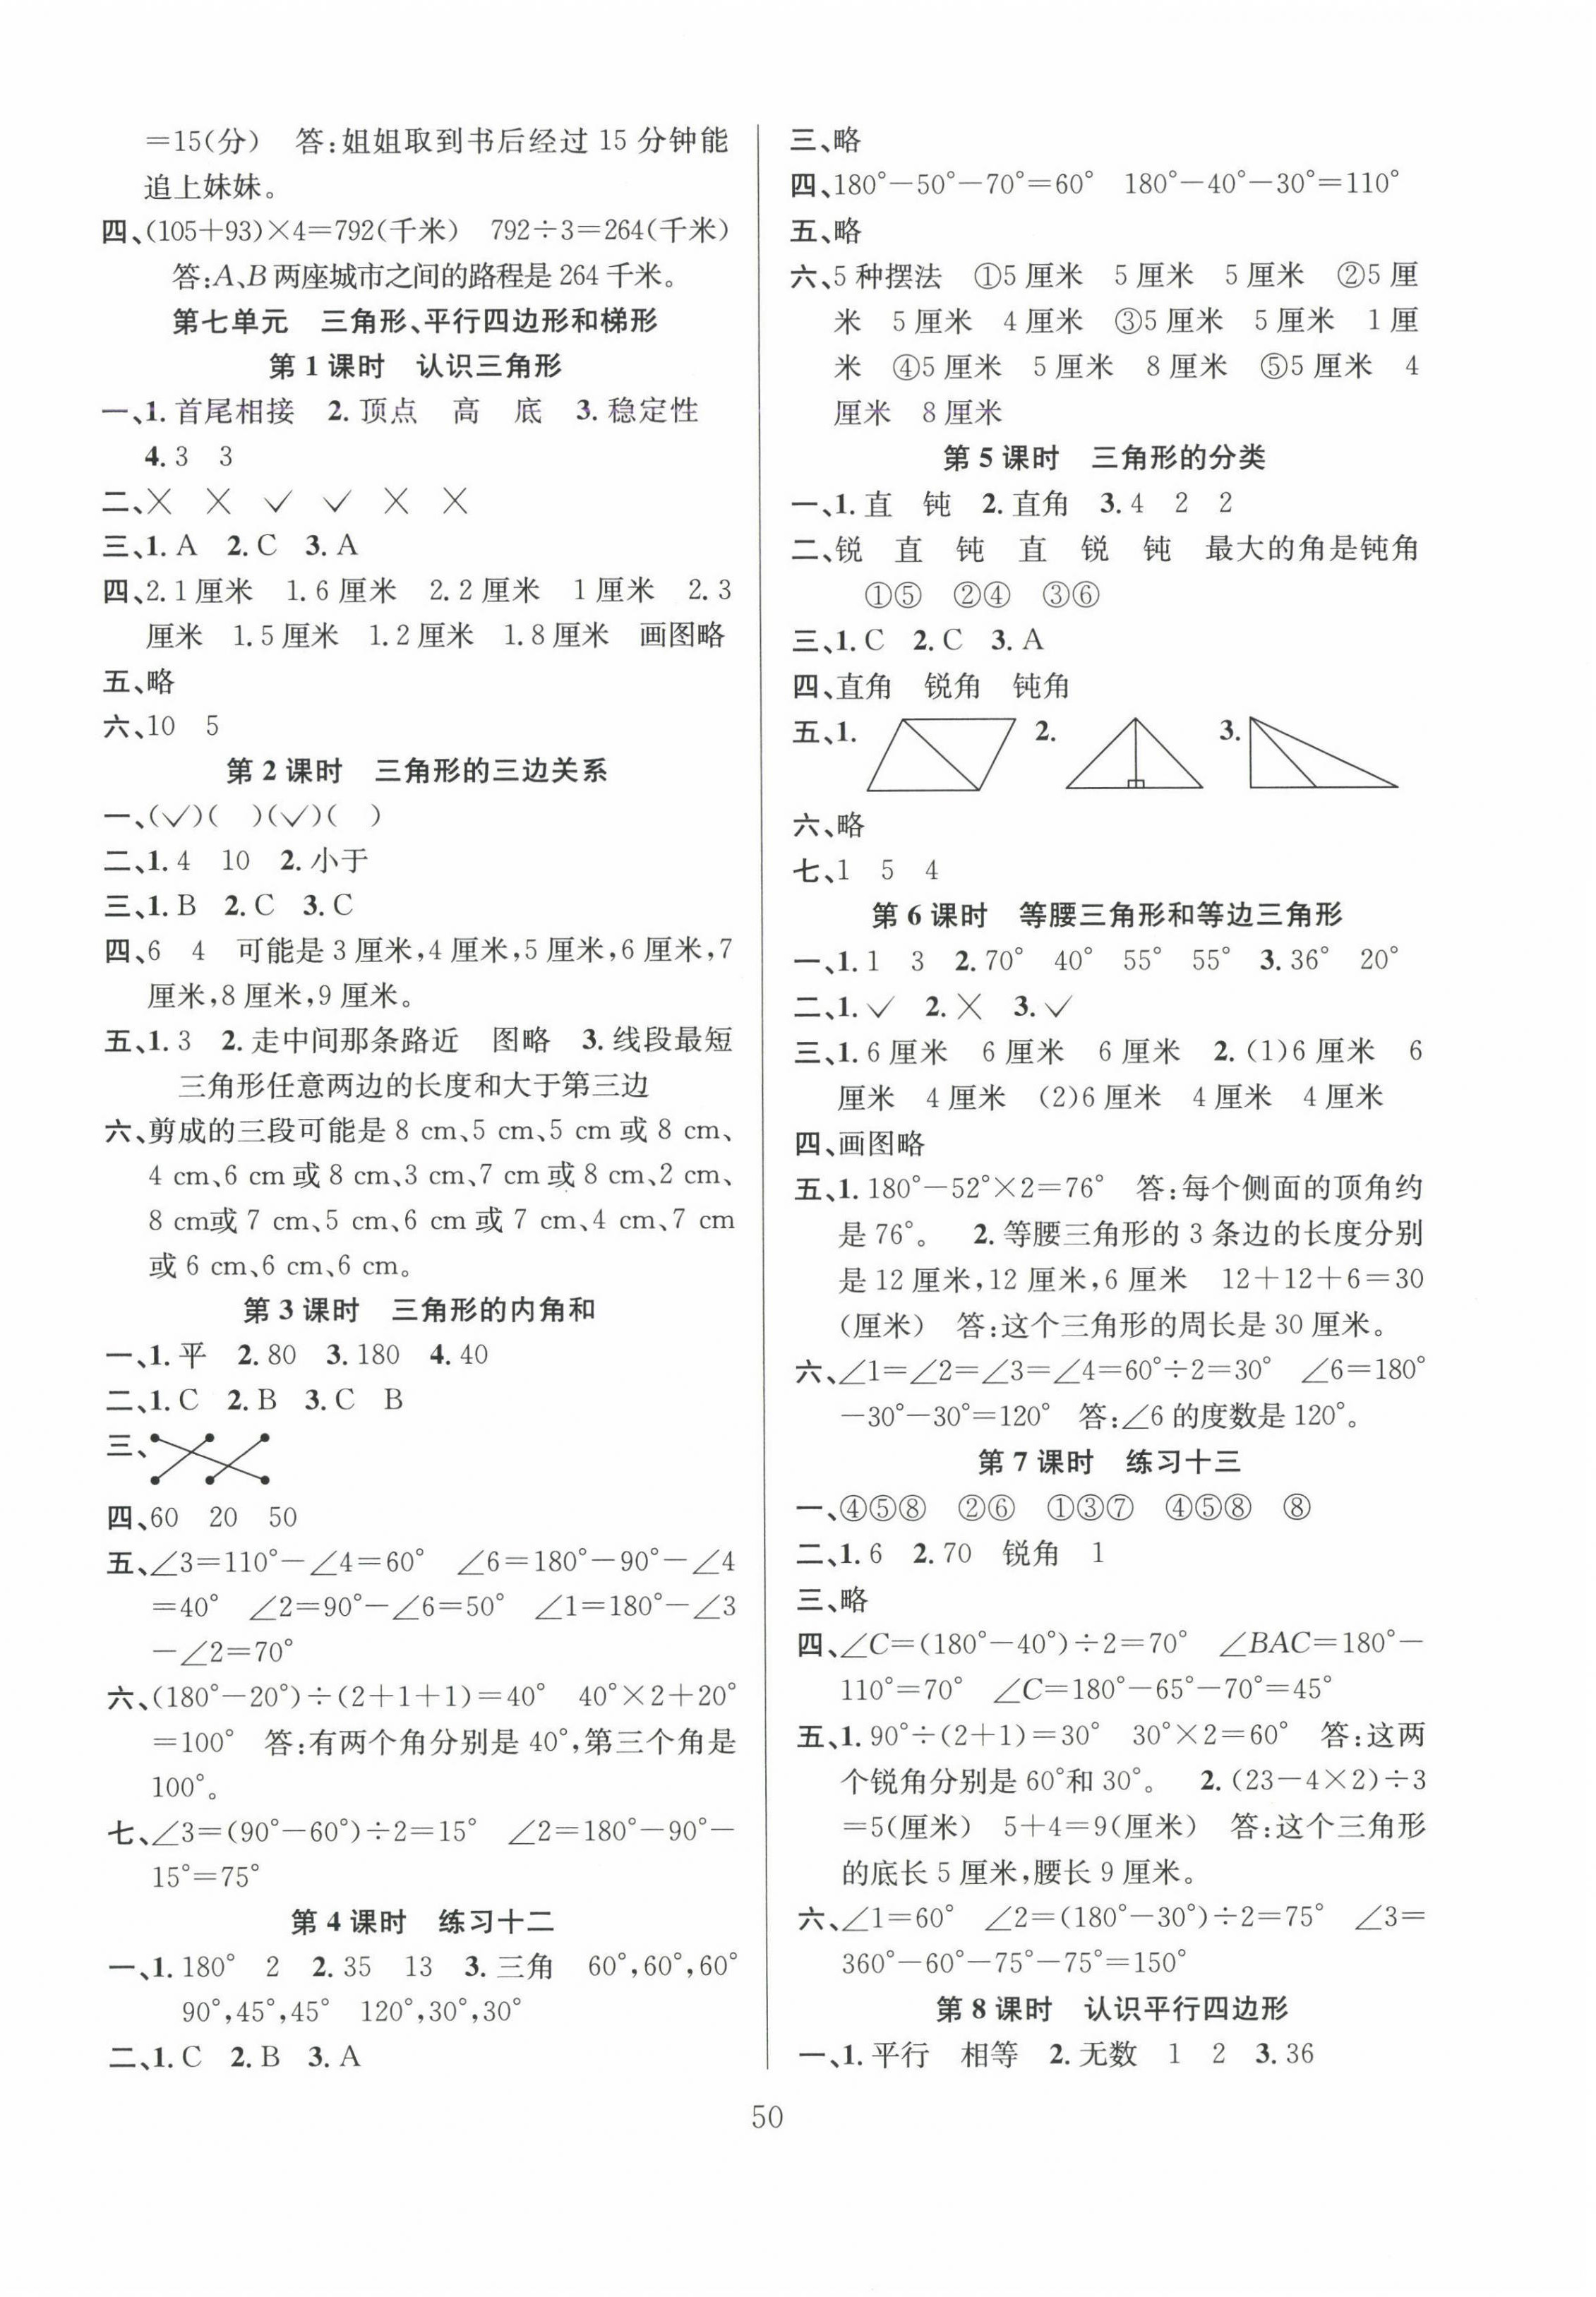 =15(分) 答:姐姐取到书后经过 15 分钟能
追上妹妹。
四、(105+93)×4=792(千米) 792÷3=264(千米)
答:A、B两座城市之间的路程是264千米。
第七单元 三角形、平行四边形和梯形
第1课时 认识三角形
一、1.首尾相接 2.顶点 高 底 3.稳定性
4.3 3
二、× × ✓ ✓ × ×
三、1. A 2. C 3. A
四、2.1厘米 1.6厘米 2.2厘米 1厘米 2.3
厘米 1.5厘米 1.2厘米 1.8厘米 画图略
五、略
六、10 5
第2课时 三角形的三边关系
一、(✓)( )(✓)( )
二、1.4 10 2.小于
三、1. B 2. C 3. C
四、6 4 可能是3厘米,4厘米,5厘米,6厘米,7
厘米,8厘米,9厘米。
五、1.3 2.走中间那条路近 图略 3.线段最短
三角形任意两边的长度和大于第三边
六、剪成的三段可能是 8 cm、5 cm、5 cm 或 8 cm、
4 cm、6 cm或 8 cm、3 cm、7 cm或 8 cm、2 cm、
8 cm或 7 cm、5 cm、6 cm 或 7 cm、4 cm、7 cm
或 6 cm、6 cm、6 cm。
第3课时 三角形的内角和
一、1.平 2.80 3.180 4.40
二、1. C 2. B 3. C B
三、
四、60 20 50
五、∠3=110°-∠4=60° ∠6=180°-90°-∠4
=40° ∠2=90°-∠6=50° ∠1=180°-∠3
-∠2=70°
六、(180°-20°)÷(2+1+1)=40° 40°×2+20°
=100° 答:有两个角分别是40°,第三个角是
100°。
七、∠3=(90°-60°)÷2=15° ∠2=180°-90°-
15°=75°
第4课时 练习十二
一、1.180° 2 2.35 13 3.三角 60°,60°,60°
90°,45°,45° 120°,30°,30°
二、1. C 2. B 3. A
三、略
四、180°-50°-70°=60° 180°-40°-30°=110°
五、略
六、5种摆法 ①5厘米 5厘米 5厘米 ②5厘
米 5厘米 4厘米 ③5厘米 5厘米 1厘
米 ④5厘米 5厘米 8厘米 ⑤5厘米 4
厘米 8厘米
第5课时 三角形的分类
一、1.直 钝 2.直角 3.4 2 2
二、锐 直 钝 直 锐 钝 最大的角是钝角
①⑤ ②④ ③⑥
三、1. C 2. C 3. A
四、直角 锐角 钝角
五、1. 2. 3.
六、略
七、1 5 4
第6课时 等腰三角形和等边三角形
一、1.1 3 2.70° 40° 55° 55° 3.36° 20°
二、1.✓ 2.× 3.✓
三、1.6厘米 6厘米 6厘米 2.(1)6厘米 6
厘米 4厘米 (2)6厘米 4厘米 4厘米
四、画图略
五、1.180°-52°×2=76° 答:每个侧面的顶角约
是76°。 2.等腰三角形的3条边的长度分别
是12厘米,12厘米,6厘米 12+12+6=30
(厘米) 答:这个三角形的周长是30厘米。
六、∠1=∠2=∠3=∠4=60°÷2=30° ∠6=180°
-30°-30°=120° 答:∠6的度数是120°。
第7课时 练习十三
一、④⑤⑧ ②⑥ ①③⑦ ④⑤⑧ ⑧
二、1.6 2.70 锐角 1
三、略
四、∠C=(180°-40°)÷2=70° ∠BAC=180°-
110°=70° ∠C=180°-65°-70°=45°
五、1.90°÷(2+1)=30° 30°×2=60° 答:这两
个锐角分别是60°和30°。 2.(23-4×2)÷3
=5(厘米) 5+4=9(厘米) 答:这个三角形
的底长5厘米,腰长9厘米。
六、∠1=60° ∠2=(180°-30°)÷2=75° ∠3=
360°-60°-75°-75°=150°
第8课时 认识平行四边形
一、1.平行 相等 2.无数 1 2 3.36
50